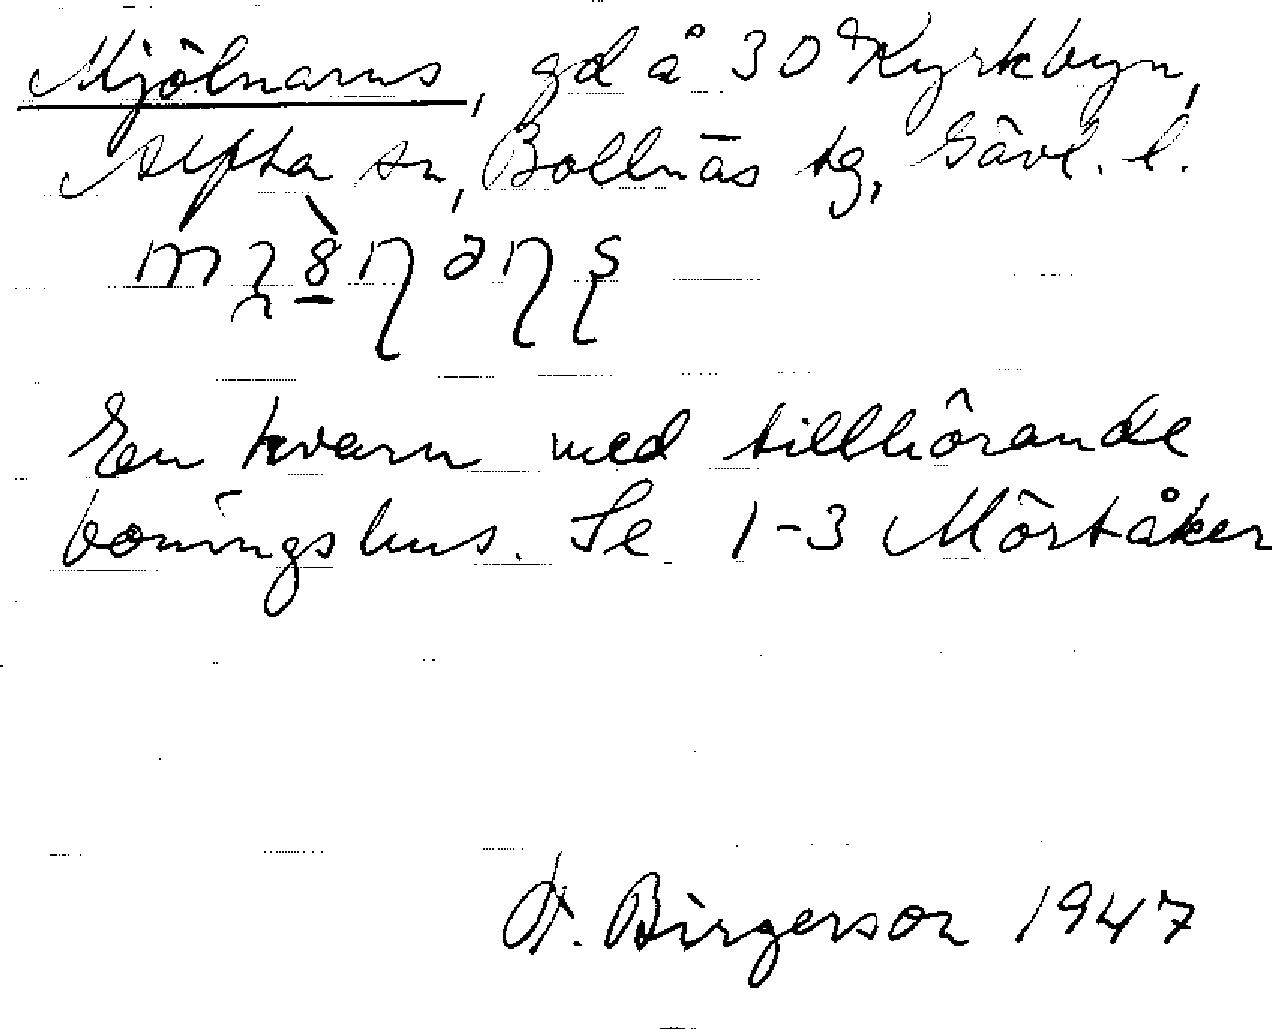 Mjölnarns, gd å 30 Kyrkbyn,
Alfta sn, Bollnäs tg, Gävl. l.
En kvarn med tillhörande
boningshus. Se 1-3 Mörtåker
Birgerson 1947